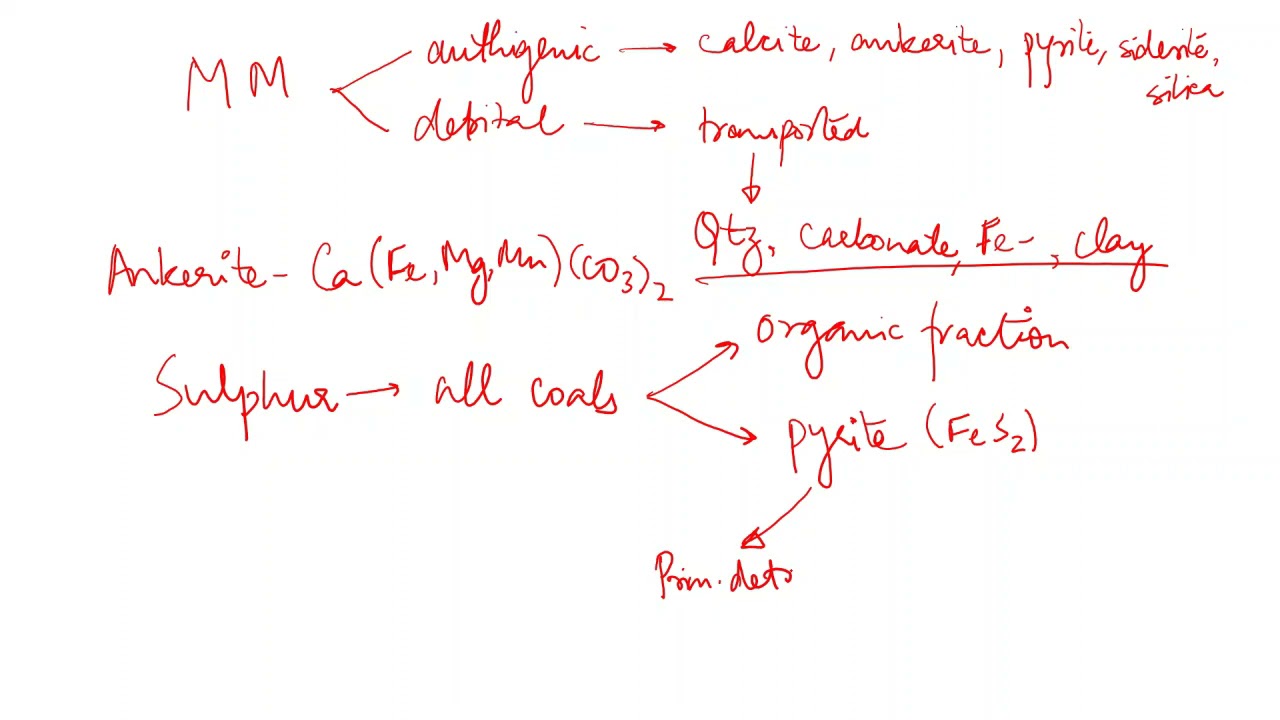 MM
authigenic → calcite, ankerite, pyrite, siderite, silica
detrital → transported
Qtz, carbonate, Fe-, clay
Ankerite - Ca(Fe,Mg,Mn)(CO3)2
Sulphur → all coals
organic fraction
pyrite (FeS2)
Prim. detr